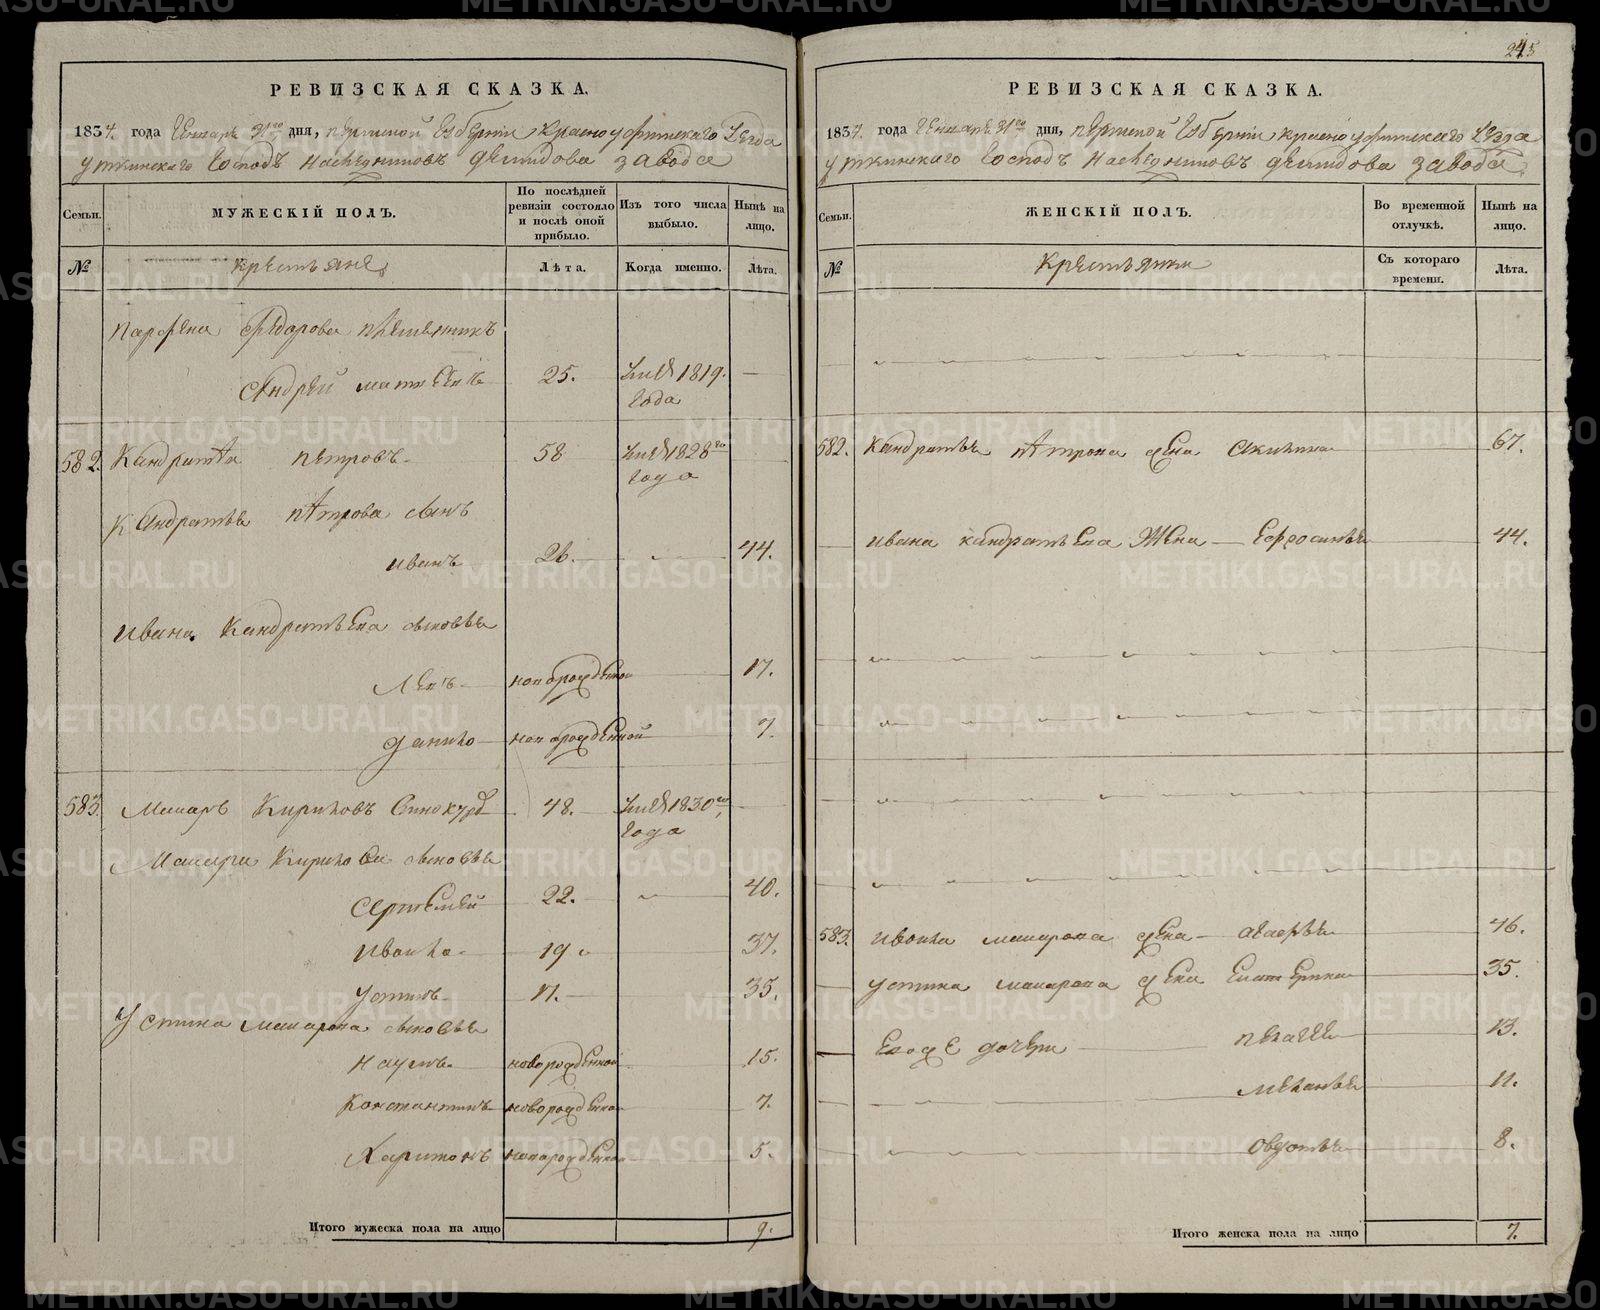 245
РЕВИЗСКАЯ СКАЗКА.
1834. года Генваря 31го дня, пермской Губернии красноуфимского Уезда
уткинского Господъ наследниковъ демидова завода
Семьи.
МУЖЕСКІЙ ПОЛЪ.
По послѣдней ревизіи состояло и послѣ оной прибыло.
Изъ того числа выбыло.
Нынѣ на лицо.
№
крестьяне
Лѣта.
Когда именно.
Лѣта.
парфена федорова племянникъ
Андрей матвеевъ 25. 1819. года
582. Кандратей петровъ 58 1828го года
Кандратья петрова сынъ
иванъ 26. 44.
ивана Кандратьева сыновья
Левъ новорожденной 17.
данило новорожденной 7.
583. Макаръ Кириловъ Винокуръ 48. 1830го года
Макара Кирилова сыновья
Артемей 22. 40.
ивайло 19 37.
устинъ 17. 35.
Устина макарова сыновья
наумъ новорожденной 15.
Константинъ новорожденной 7.
Харитонъ новорожденной 5.
Итого мужеска пола на лицо 9.
РЕВИЗСКАЯ СКАЗКА.
1834. года Генваря 31го дня, пермской Губернии красноуфимского Уезда
уткинского Господъ наследниковъ демидова завода
Семьи.
ЖЕНСКІЙ ПОЛЪ.
Во временной отлучкѣ.
Нынѣ на лицо.
№
Крестьянки
Съ котораго времени.
Лѣта.
582. Кандратья петрова жена Акилина 67.
ивана кандратьева Жена Ефросинья 44.
583. макарова жена 46.
устина макарова жена Екатерина 35.
Егоже дочери пелагея 13.
меланья 11.
овдотья 8.
Итого женска пола на лицо 7.
METRIKI.GASO-URAL.RU